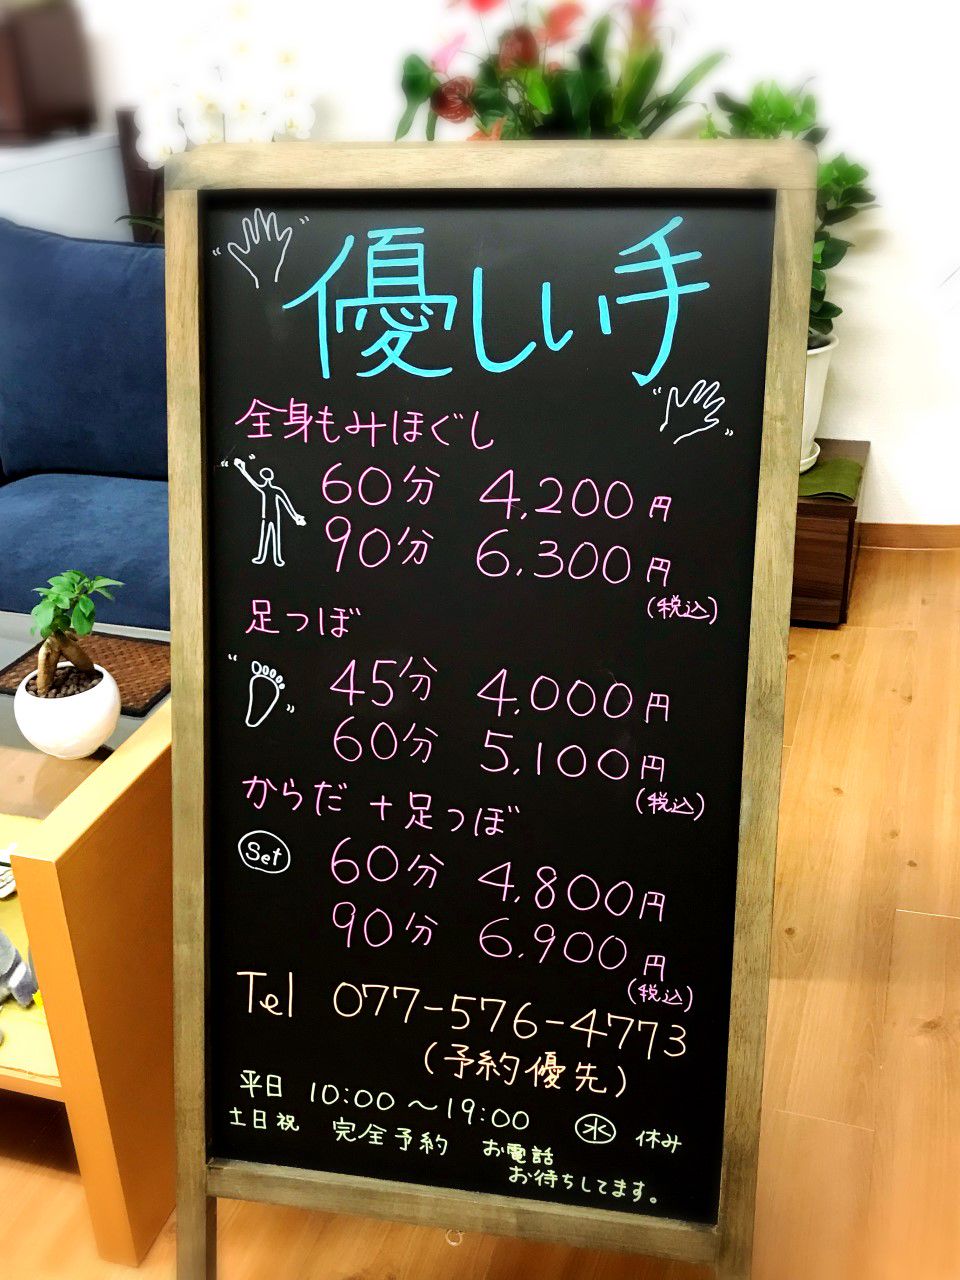 優しい手
全身もみほぐし
60分 4,200円
90分 6,300円
(税込)
足つぼ
45分 4,000円
60分 5,100円
(税込)
からだ+足つぼ
Set 60分 4,800円
90分 6,900円
(税込)
Tel 077-576-4773
(予約優先)
平日 10:00〜19:00 ㊌ 休み
土日祝 完全予約 お電話
お待ちしてます。